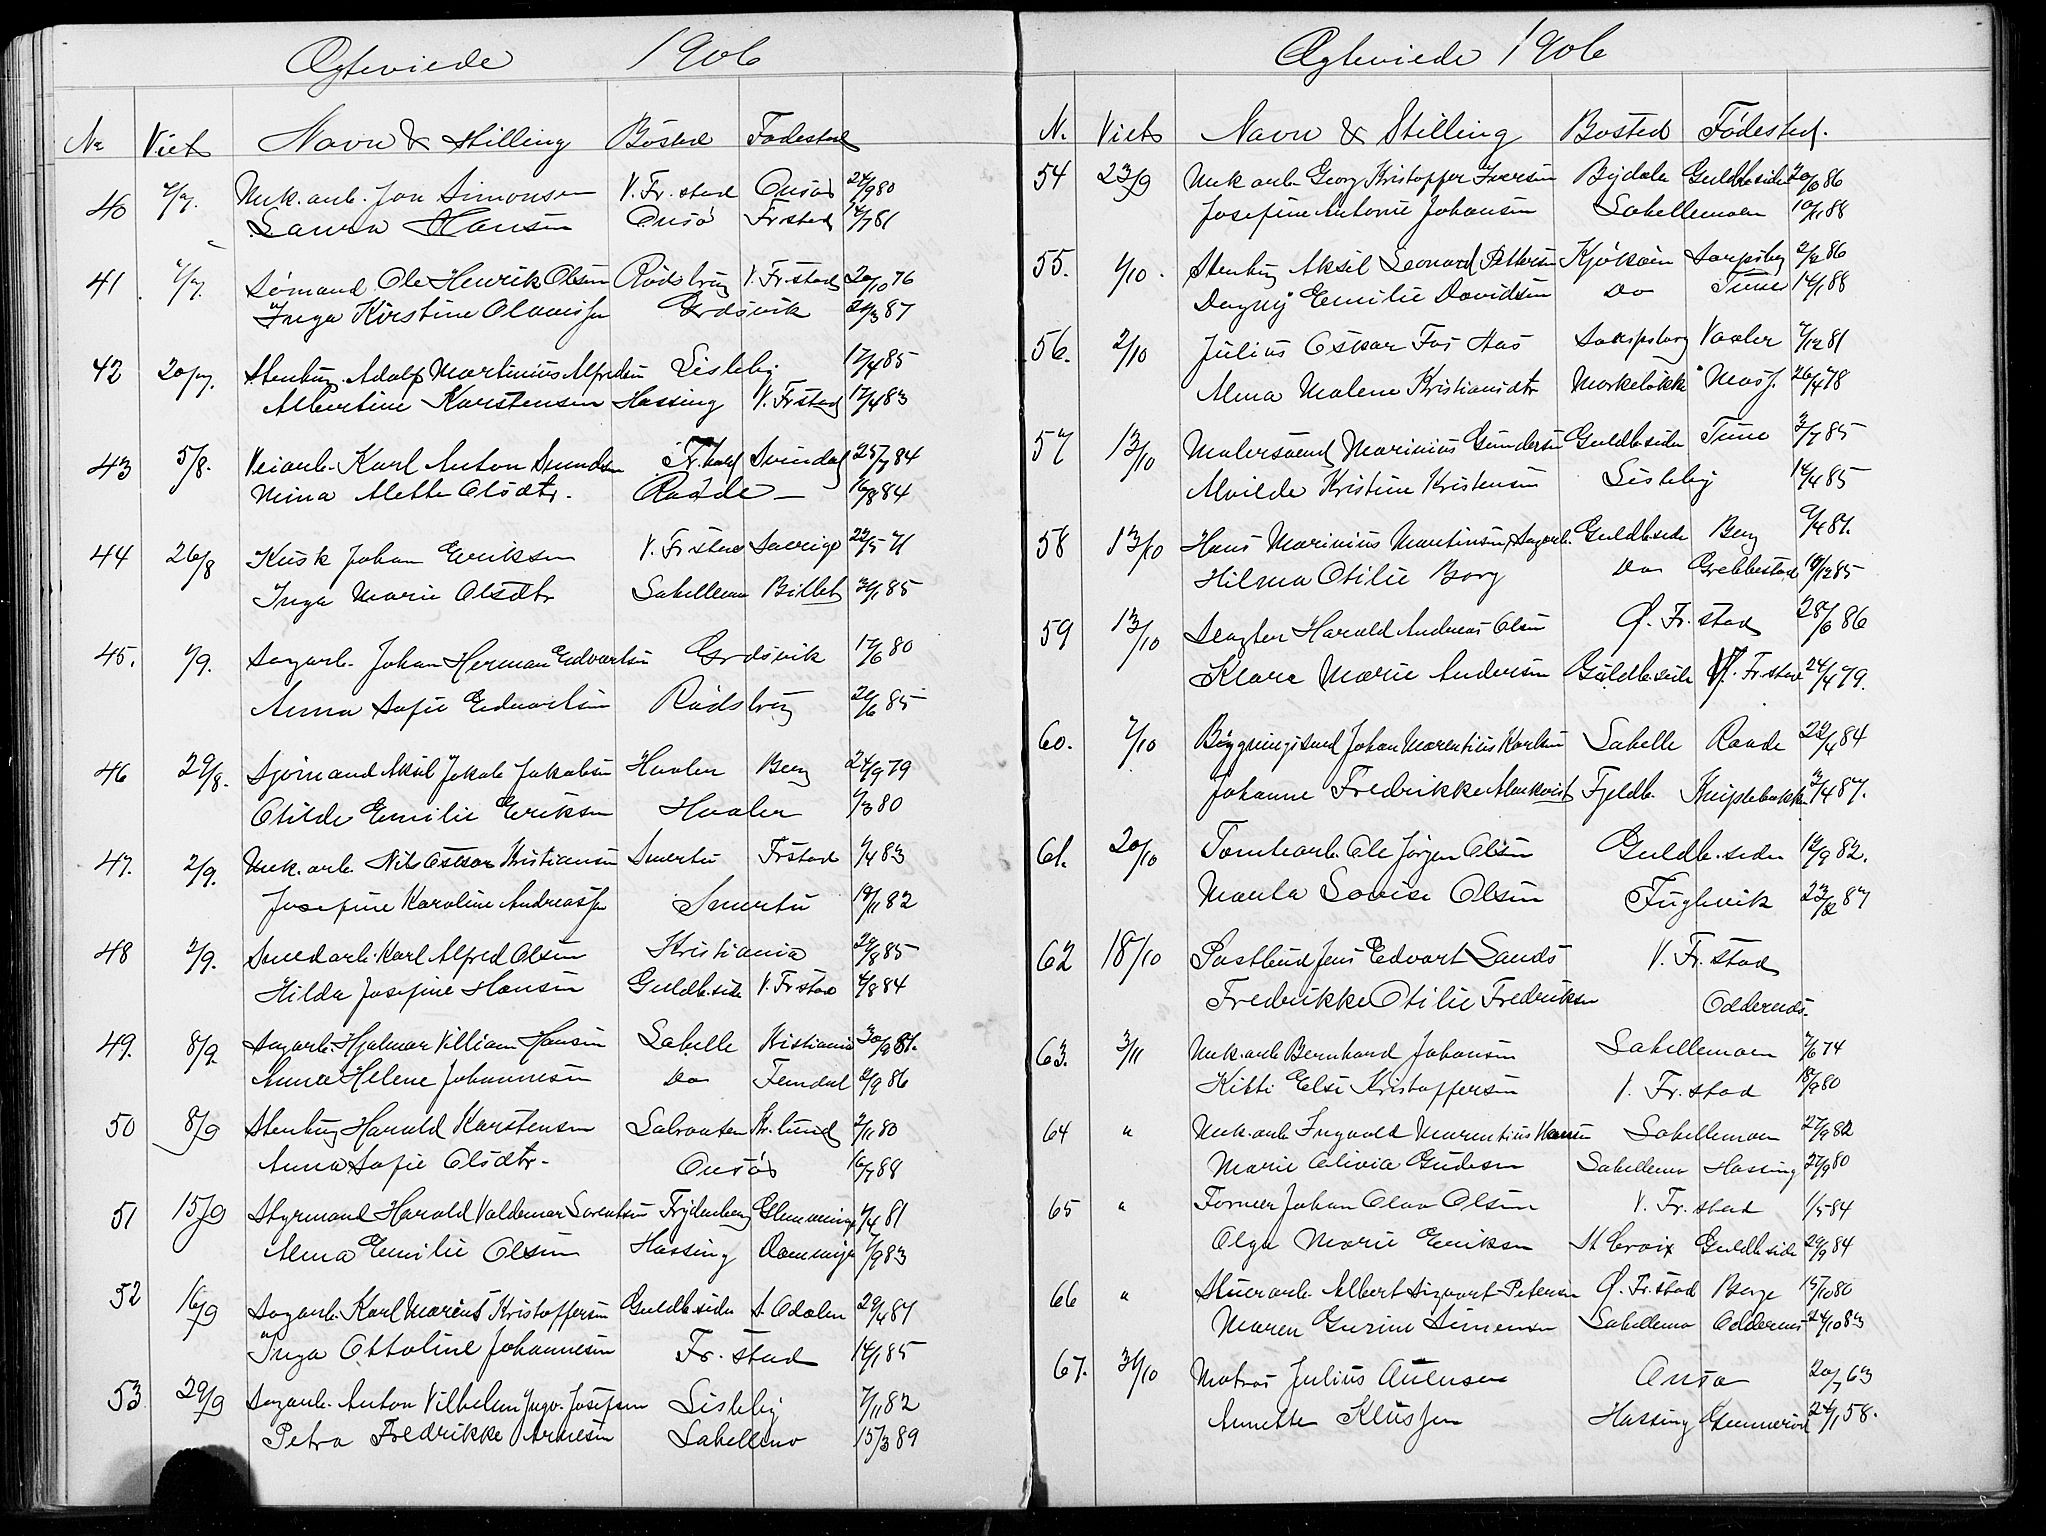 Ægteviede 1906
No Viet Navn & Stilling Bosted Fødested
40 7/7. Mek. arb. Jon Simonsen V. Fr. stad Onsø 24/9 80
Laura Hansen Onsø Fr. stad 14/7 81
41 7/7. Sømand Ole Henrik Olsen Rødsbrug V. Fr. stad 20/10 76
Inga Kirstine Olavissen Grdsvik 3 87
42 20/7. Stenhug. Adolf Martinius Alfredsen Lisleby 17/4 85
Albertine Karstensen Hassing V. Fr stad 17/4 83
43 5/8. Veiarb. Karl Anton Svendsen Fr. stad Svindal 25/7 84
Mina Mette Olsdtr. Raade — 16/8 84
44 26/8 Kusk Johan Eriksen V. Fr stad Sverige 22/5 71
Inga Marie Olsdtr Labellemo Billet 1 85
45. 1/9. Sagarb. Johan Herman Edvartsen Grdsvik 17/6 80
Anna Sofie Edvartsen Rødsbrug 6 85
46 29/8. Sjømand Aksel Jakob Jakobsen Hvaler Berg 24/9 79
Otilde Emilie Eriksen Hvaler 3 80
47. 2/9. Mek. arb. Nils Oskar Kristiansen Smertu Fr stad 4 83
Josefine Karoline Andreassen Smertu 19/11 82
48 2/9. Smedarb. Karl Alfred Olsen Kristiania 8 85
Hilda Josefine Hansen Guldb. siden V. Fr stad 4/8 84
49. 8/9. Sagarb. Hjalmar Villiam Hansen Labelle Kristiania 30/9 81.
Anna Helene Johannesen Do 9 86
50 8/9 Stenhug Harald Karstensen Labraaten Kr. lund 2/11 80
Anna Sofie Olsdtr. Onsø 16/7 88
51 15/9 Styrmand Harald Valdemar Lorentsen Frydenberg Glemminge 4 81
Alma Emilie Olsen Hassing 7/9 83
52 16/9 Sagarb. Karl Marius Kristoffersen Guldb. siden S. Odalen 29/4 87
Inga Ottoline Johannesen Fr. stad 14/1 85
53 29/9 Sagarb. Anton Vilhelm Ingv. Josefsen Lisleby 7/11 82
Petra Fredrikke Arnesen Labellmo 15/3 89
Ægteviede 1906
N. Viets Navn & Stilling Bosted Fødested.
54 23/9 Mek arb. Georg Kristoffer Iversen Bydalen Guldb. siden 86
Josefine Antonie Johansen Labellemoen 10/1 88
55. 1/10. Stenhug Aksel Leonard Pettersen Kjøkøen Sarpsborg 86
Dagny Emilie Davidsen Do Tune 14/1 88
56. 2/10 Julius Oskar Fos Aas Sarpsborg Vaaler 7/12 81
Alma Malene Kristiansdtr Mørkeløkk Moss. 26/4 78
57 13/10 Malersvend Marinius Gundersen Guldb siden Tune 3/7 85
Alvilde Kristine Kristensen Lisleby 14/4 85
58 13/10 Hans Marinius Martinsen, Sagarb. Guldb. side Berg 4 81.
Hilma Otilie Borg Do Grebbestad 12 85
59 13/10 Slagter Harald Andreas Olsen Ø. Fr. stad 28/6 86
Klara Marie Andersen Guldb. siden V. Fr. stad 24/4 79.
60. 7/10 Bygningssned Johan Marentius Karlsen Labelle Raade 22/4 84
Johanne Fredrikke Almkvist Fjeldb. 4 87.
61. 20/10 Tomtearb. Ole Jørgen Olsen Guldb. siden 12/9 82.
Marta Lovise Olsen Fuglevik 87
62 18/10 Postbud Jens Edvart Sands V. Fr. stad
Fredrikke Otilie Fredriksen Odderøens.
63. 3/11 Mek. arb Bernhard Johansen Labellemoen 7/6 74
Kitti Else Kristoffersen V. Fr. stad 18/9 80
64 " Mek. arb Ingvald Marentius Hansen Labellemoen 27/9 82
Marie Olivia Gudesen Labellemo Hassing 27/9 80
65 " Former Johan Olav Olsen V. Fr. stad 1/5 84
Olga Marie Eriksen St Croix Guldb. side 29/9 84
66 " Stuerarb. Albert Sigvart Petersen Ø. Fr. stad Borge 15/10 80
Maren Gurine Simensen Labellemo 24/10 83
67. 31/10 Matros Julius Aulensen Onsø 20/7 63
Annette Klussen Hassing 24/1 58.